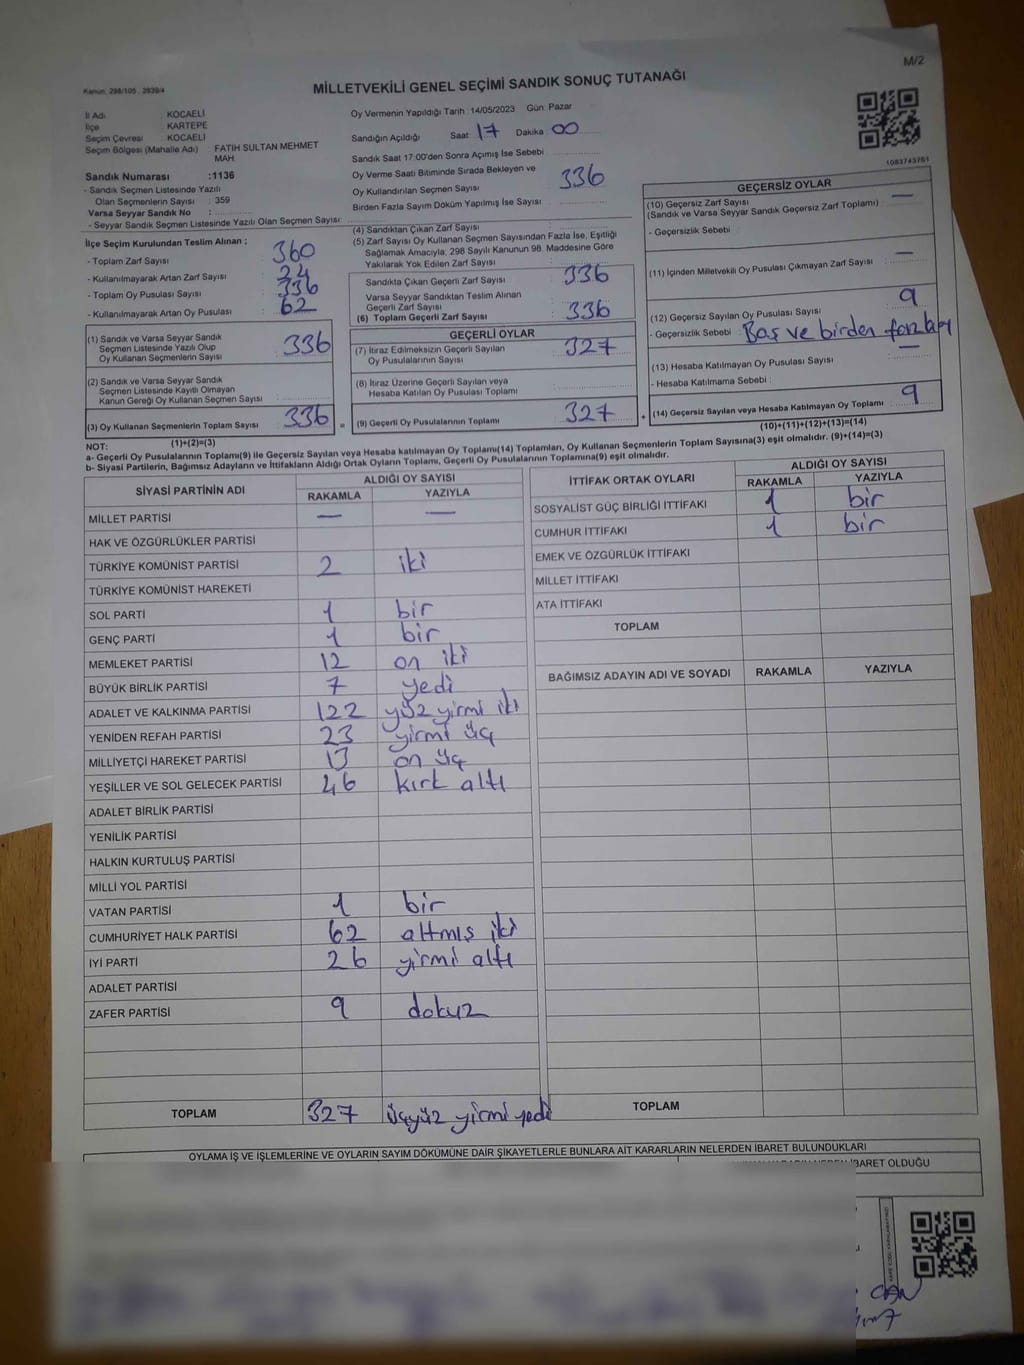 M/2
Kanun: 298/105, 2839/4
MİLLETVEKİLİ GENEL SEÇİMİ SANDIK SONUÇ TUTANAĞI
İl Adı : KOCAELİ
İlçe : KARTEPE
Seçim Çevresi : KOCAELİ
Seçim Bölgesi (Mahalle Adı) : FATİH SULTAN MEHMET
MAH.
Sandık Numarası :1136
- Sandık Seçmen Listesinde Yazılı
Olan Seçmenlerin Sayısı : 359
Varsa Seyyar Sandık No :
- Seyyar Sandık Seçmen Listesinde Yazılı Olan Seçmen Sayısı:
Oy Vermenin Yapıldığı Tarih :14/05/2023 Gün: Pazar
Sandığın Açıldığı Saat: 17 Dakika: 00
Sandık Saat 17:00'den Sonra Açımış İse Sebebi
Oy Verme Saati Bitiminde Sırada Bekleyen ve
Oy Kullandırılan Seçmen Sayısı : 336
Birden Fazla Sayım Döküm Yapılmış İse Sayısı
1083743761
İlçe Seçim Kurulundan Teslim Alınan ;
- Toplam Zarf Sayısı : 360
- Kullanılmayarak Artan Zarf Sayısı : 24
- Toplam Oy Pusulası Sayısı : 336
- Kullanılmayarak Artan Oy Pusulası : 62
(1) Sandık ve Varsa Seyyar Sandık
Seçmen Listesinde Yazılı Olup
Oy Kullanan Seçmenlerin Sayısı : 336
(2) Sandık ve Varsa Seyyar Sandık
Seçmen Listesinde Kayıtlı Olmayan
Kanun Gereği Oy Kullanan Seçmen Sayısı :
(3) Oy Kullanan Seçmenlerin Toplam Sayısı : 336
(1)+(2)=(3)
(4) Sandıktan Çıkan Zarf Sayısı :
(5) Zarf Sayısı Oy Kullanan Seçmen Sayısından Fazla İse, Eşitliği
Sağlamak Amacıyla, 298 Sayılı Kanunun 98. Maddesine Göre
Yakılarak Yok Edilen Zarf Sayısı :
Sandıkta Çıkan Geçerli Zarf Sayısı : 336
Varsa Seyyar Sandıktan Teslim Alınan
Geçerli Zarf Sayısı
(6) Toplam Geçerli Zarf Sayısı : 336
GEÇERLİ OYLAR
(7) İtiraz Edilmeksizin Geçerli Sayılan
Oy Pusulalarının Sayısı : 327
(8) İtiraz Üzerine Geçerli Sayılan veya
Hesaba Katılan Oy Pusulası Toplamı
= (9) Geçerli Oy Pusulalarının Toplamı : 327
GEÇERSİZ OYLAR
(10) Geçersiz Zarf Sayısı : —
(Sandık ve Varsa Seyyar Sandık Geçersiz Zarf Toplamı)
- Geçersizlik Sebebi :
(11) İçinden Milletvekili Oy Pusulası Çıkmayan Zarf Sayısı : —
(12) Geçersiz Sayılan Oy Pusulası Sayısı : 9
- Geçersizlik Sebebi : Boş ve birden fazla oy
(13) Hesaba Katılmayan Oy Pusulası Sayısı : —
- Hesaba Katılmama Sebebi :
+ (14) Geçersiz Sayılan veya Hesaba Katılmayan Oy Toplamı : 9
(10)+(11)+(12)+(13)=(14)
NOT:
a- Geçerli Oy Pusulalarının Toplamı(9) ile Geçersiz Sayılan veya Hesaba katılmayan Oy Toplamı(14) Toplamları, Oy Kullanan Seçmenlerin Toplam Sayısına(3) eşit olmalıdır. (9)+(14)=(3)
b- Siyasi Partilerin, Bağımsız Adayların ve İttifakların Aldığı Ortak Oyların Toplamı, Geçerli Oy Pusulalarının Toplamına(9) eşit olmalıdır.
SİYASİ PARTİNİN ADI ALDIĞI OY SAYISI
RAKAMLA YAZIYLA
MİLLET PARTİSİ — —
HAK VE ÖZGÜRLÜKLER PARTİSİ
TÜRKİYE KOMÜNİST PARTİSİ 2 iki
TÜRKİYE KOMÜNİST HAREKETİ
SOL PARTİ 1 bir
GENÇ PARTİ 1 bir
MEMLEKET PARTİSİ 12 on iki
BÜYÜK BİRLİK PARTİSİ 7 yedi
ADALET VE KALKINMA PARTİSİ 122 yüz yirmi iki
YENİDEN REFAH PARTİSİ 23 yirmi üç
MİLLİYETÇİ HAREKET PARTİSİ 13 on üç
YEŞİLLER VE SOL GELECEK PARTİSİ 46 kırk altı
ADALET BİRLİK PARTİSİ
YENİLİK PARTİSİ
HALKIN KURTULUŞ PARTİSİ
MİLLİ YOL PARTİSİ
VATAN PARTİSİ 1 bir
CUMHURİYET HALK PARTİSİ 62 altmış iki
İYİ PARTİ 26 yirmi altı
ADALET PARTİSİ
ZAFER PARTİSİ 9 dokuz
TOPLAM 327 üçyüz yirmi yedi
İTTİFAK ORTAK OYLARI ALDIĞI OY SAYISI
RAKAMLA YAZIYLA
SOSYALİST GÜÇ BİRLİĞİ İTTİFAKI 1 bir
CUMHUR İTTİFAKI 1 bir
EMEK VE ÖZGÜRLÜK İTTİFAKI
MİLLET İTTİFAKI
ATA İTTİFAKI
TOPLAM
BAĞIMSIZ ADAYIN ADI VE SOYADI RAKAMLA YAZIYLA
TOPLAM
OYLAMA İŞ VE İŞLEMLERİNE VE OYLARIN SAYIM DÖKÜMÜNE DAİR ŞİKAYETLERLE BUNLARA AİT KARARLARIN NELERDEN İBARET BULUNDUKLARI
İBARET OLDUĞU
CAN